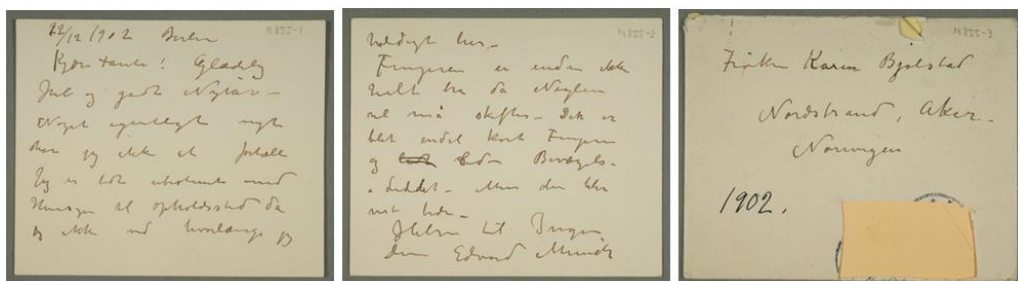 22/12 1902 Berlin
N 855-1
Kjære tante! Glædelig
Jul og godt Nytår –
Noget egentligt nyt
har jeg ikke at fortælle
Jeg er lidt ubestemt med
Hensyn til opholdssted da
jeg ikke ved hvorlænge jeg
N 855-2
her –
Fingeren er endnu ikke
helt bra da Neglen
vel må skiftes – Det er
blet endel kort Finger
og liden Bevægels-
i Leddet – Men den blir
nok bedre –
Hilsen til Inger
Din Edvard Munch
N 855-3
Frøken Karen Bjølstad
Nordstrand, Aker –
Norwegen
1902.